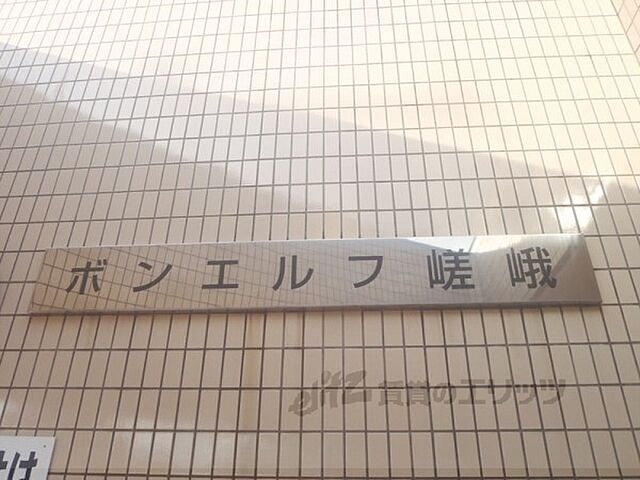 ボンエルフ嵯峨
elitz 賃貸のエリッツ
けは